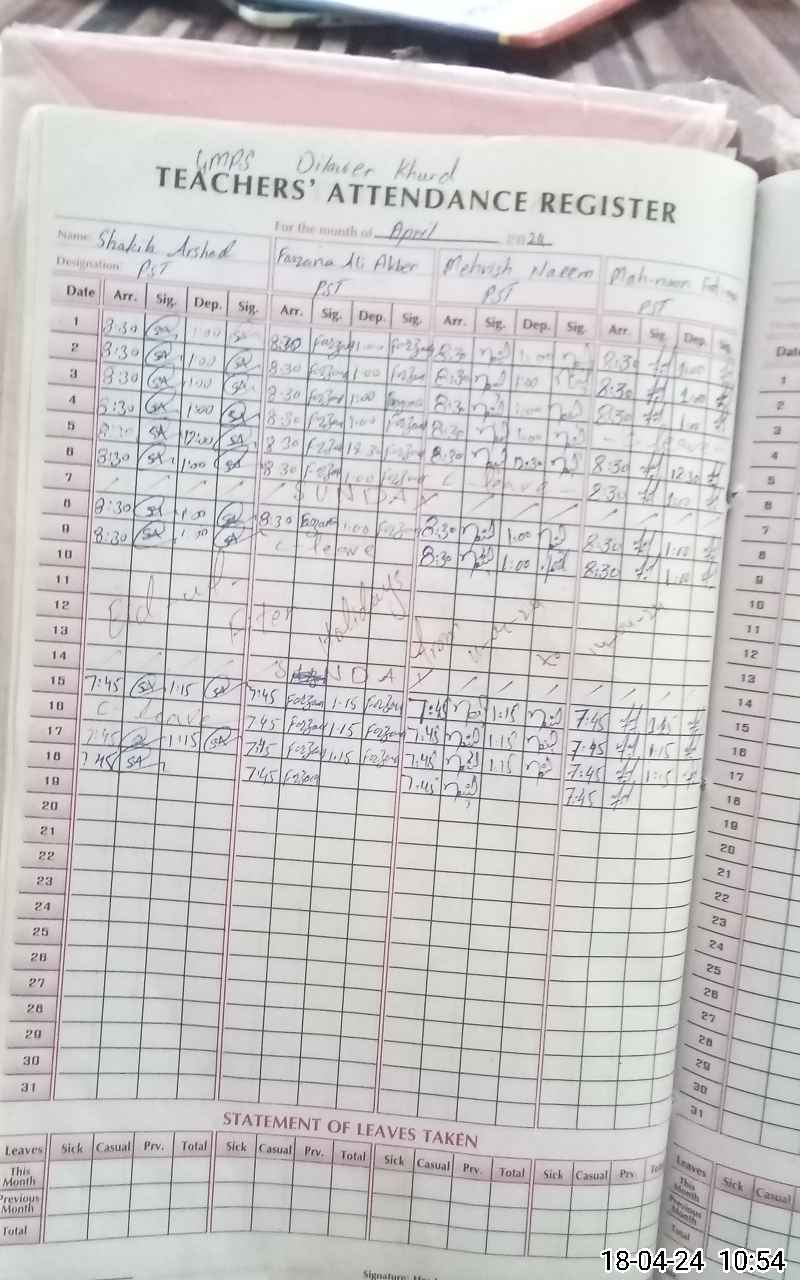 GMPS Dilawer Khurd
TEACHERS' ATTENDANCE REGISTER
For the month of April 2024
Name: Shakila Arshad Farzana Ali Akber Mehvish Naeem Mah-noor
Designation: PST PST PST PST
Date Arr. Sig. Dep. Sig. Arr. Sig. Dep. Sig. Arr. Sig. Dep. Sig. Arr. Sig. Dep.
1 8:30 SA 1:00 SA 8:30 Farzana 1:00 Farzana 8:30 1:00 8:30 1:00
2 8:30 SA 1:00 SA 8:30 Farzana 1:00 Farzana 8:30 1:00 8:30 1:00
3 8:30 SA 1:00 SA 8:30 Farzana 1:00 8:30 1:00 8:30 1:00
4 8:30 SA 1:00 SA 8:30 Farzana 1:00 Farzana 8:30 1:00 leave
5 SA 12:00 SA 8:30 Farzana 12:30 Farzana 8:30 12:30 8:30 12:30
6 8:30 SA 1:00 SA 8:30 Farzana 1:00 Farzana C - leave - 8:30 1:00
7 SUNDAY
8 8:30 SA 1:00 SA 8:30 Farzana 1:00 Farzana 8:30 1:00 8:30 1:00
9 8:30 SA 1:00 SA C - leave 8:30 1:00 8:30 1:00
10
11 Eid-ul-Fiter Holidays from
12
13
14 SUNDAY
15 7:45 SA 1:15 SA 7:45 Farzana 1:15 Farzana 7:45 1:15 7:45 1:15
16 C - leave 7:45 Farzana 1:15 Farzana 7:45 1:15 7:45 1:15
17 7:45 SA 1:15 SA 7:45 Farzana 1:15 Farzana 7:45 1:15 7:45 1:15
18 7:45 SA 7:45 Farzana 7:45 7:45
19
20
21
22
23
24
25
26
27
28
29
30
31
STATEMENT OF LEAVES TAKEN
Leaves Sick Casual Prv. Total Sick Casual Prv. Total Sick Casual Prv. Total Sick Casual Prv.
This Month
Previous Month
Total
Date
1
2
3
4
5
6
7
8
9
10
11
12
13
14
15
16
17
18
19
20
21
22
23
24
25
26
27
28
29
30
31
Leaves Sick Casual
This Month
Previous Month
Total
18-04-24 10:54